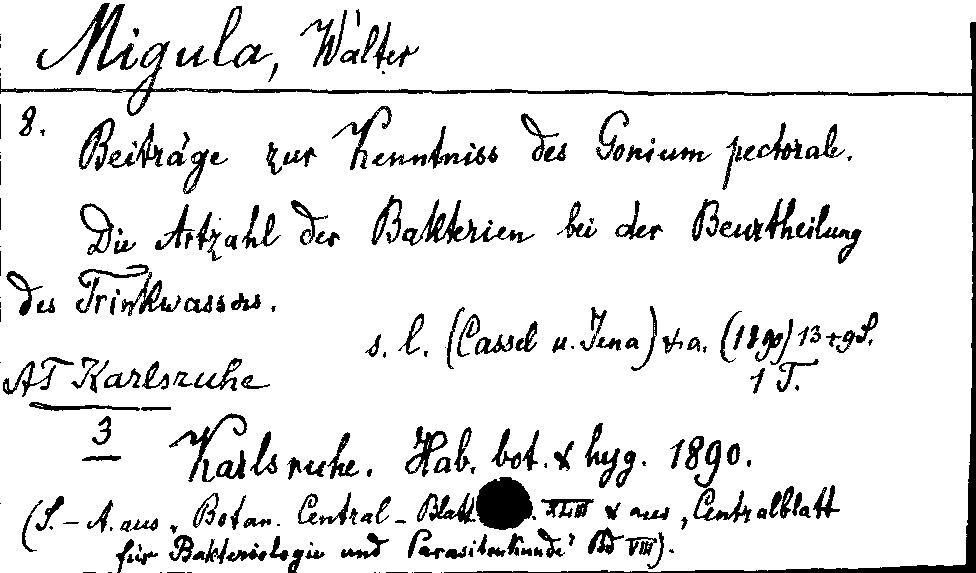 Migula, Walter
8.
Beiträge zur Kenntniss des Gonium pectorale.
Die Artzahl der Bakterien bei der Beurtheilung
des Trinkwassers.
s. l. (Cassel u. Jena) & a. (1890) 13 + 9 S.
1 T.
AT Karlsruhe
3
Karlsruhe. Hab. bot. & hyg. 1890.
(S.-A. aus „Botan. Central-Blatt XLIII & aus „Centralblatt
für Bakteriologie und Parasitenkunde" Bd VIII).